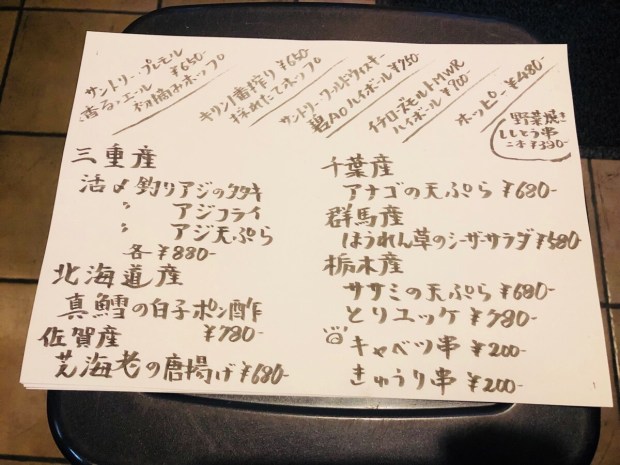 サントリー・プレモル
香るエール ¥650-
初摘みホップ
キリン一番搾り ¥650
採れたてホップ
サントリーワールドウイスキー
碧Aoハイボール ¥750-
イチローズモルトMWR
ハイボール ¥700-
ホッピー ¥480-
野菜焼き
ししとう串
二本¥390-
三重産
活〆釣りアジのタタキ
〃 アジフライ
〃 アジ天ぷら
各¥880-
北海道産
真鱈の白子ポン酢
¥780-
佐賀産
芝海老の唐揚げ ¥680-
千葉産
アナゴの天ぷら ¥680-
群馬産
ほうれん草のシーザーサラダ ¥580
栃木産
ササミの天ぷら ¥680-
とりユッケ ¥780-
キャベツ串 ¥200-
きゅうり串 ¥200-